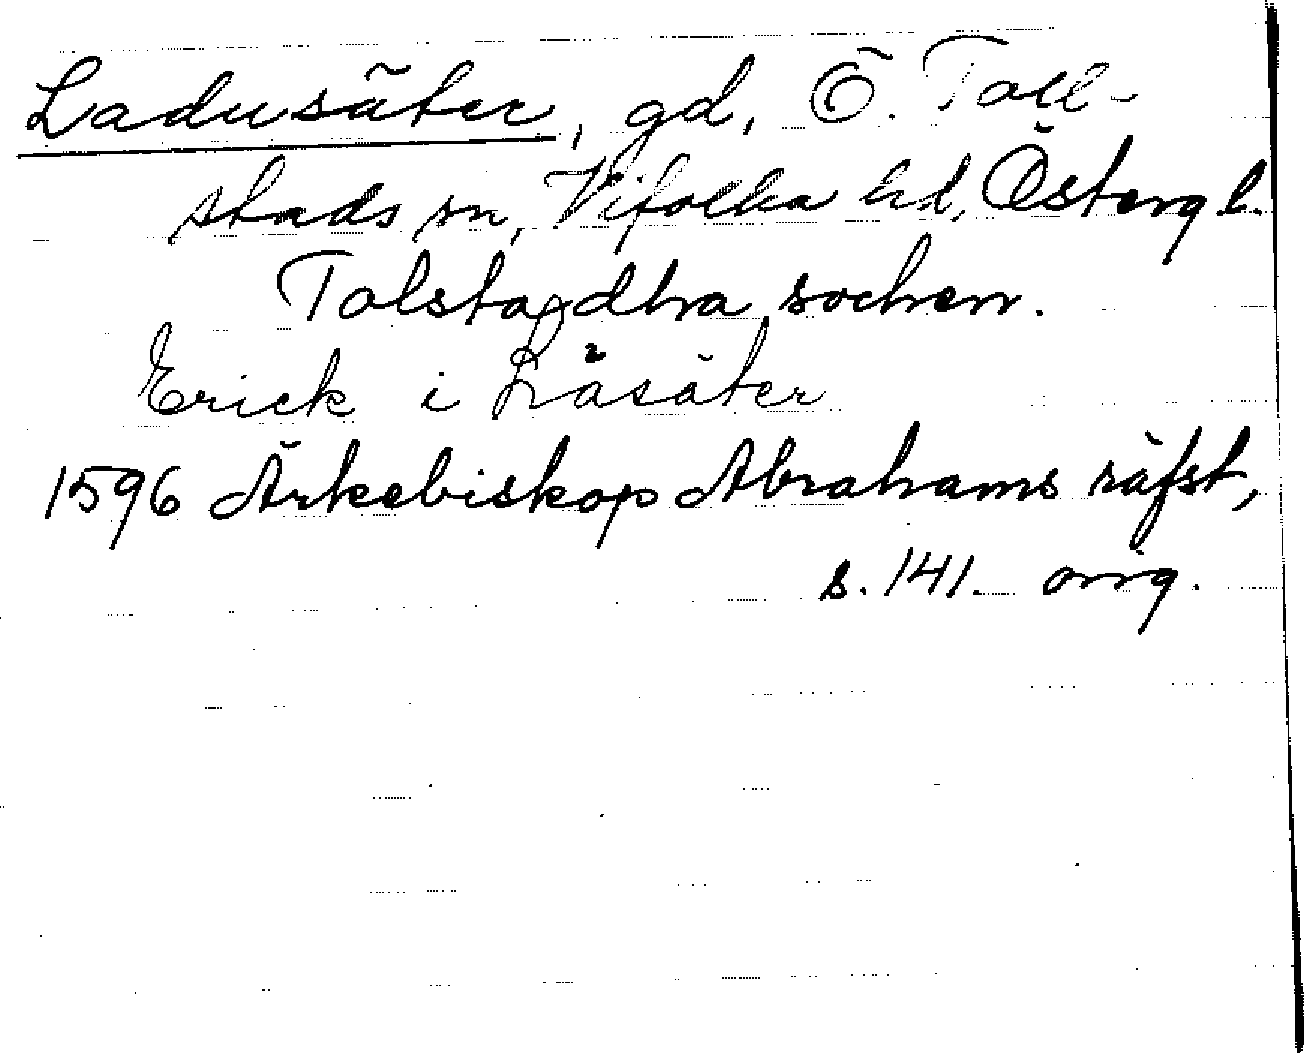 Ladusäter, gd, Ö. Toll-
stads sn, Vifolka hd, Östergl.
Tolstadhra sochen.
Erick i Låsäter
1596 Ärkebiskop Abrahams räfst,
s. 141. orig.